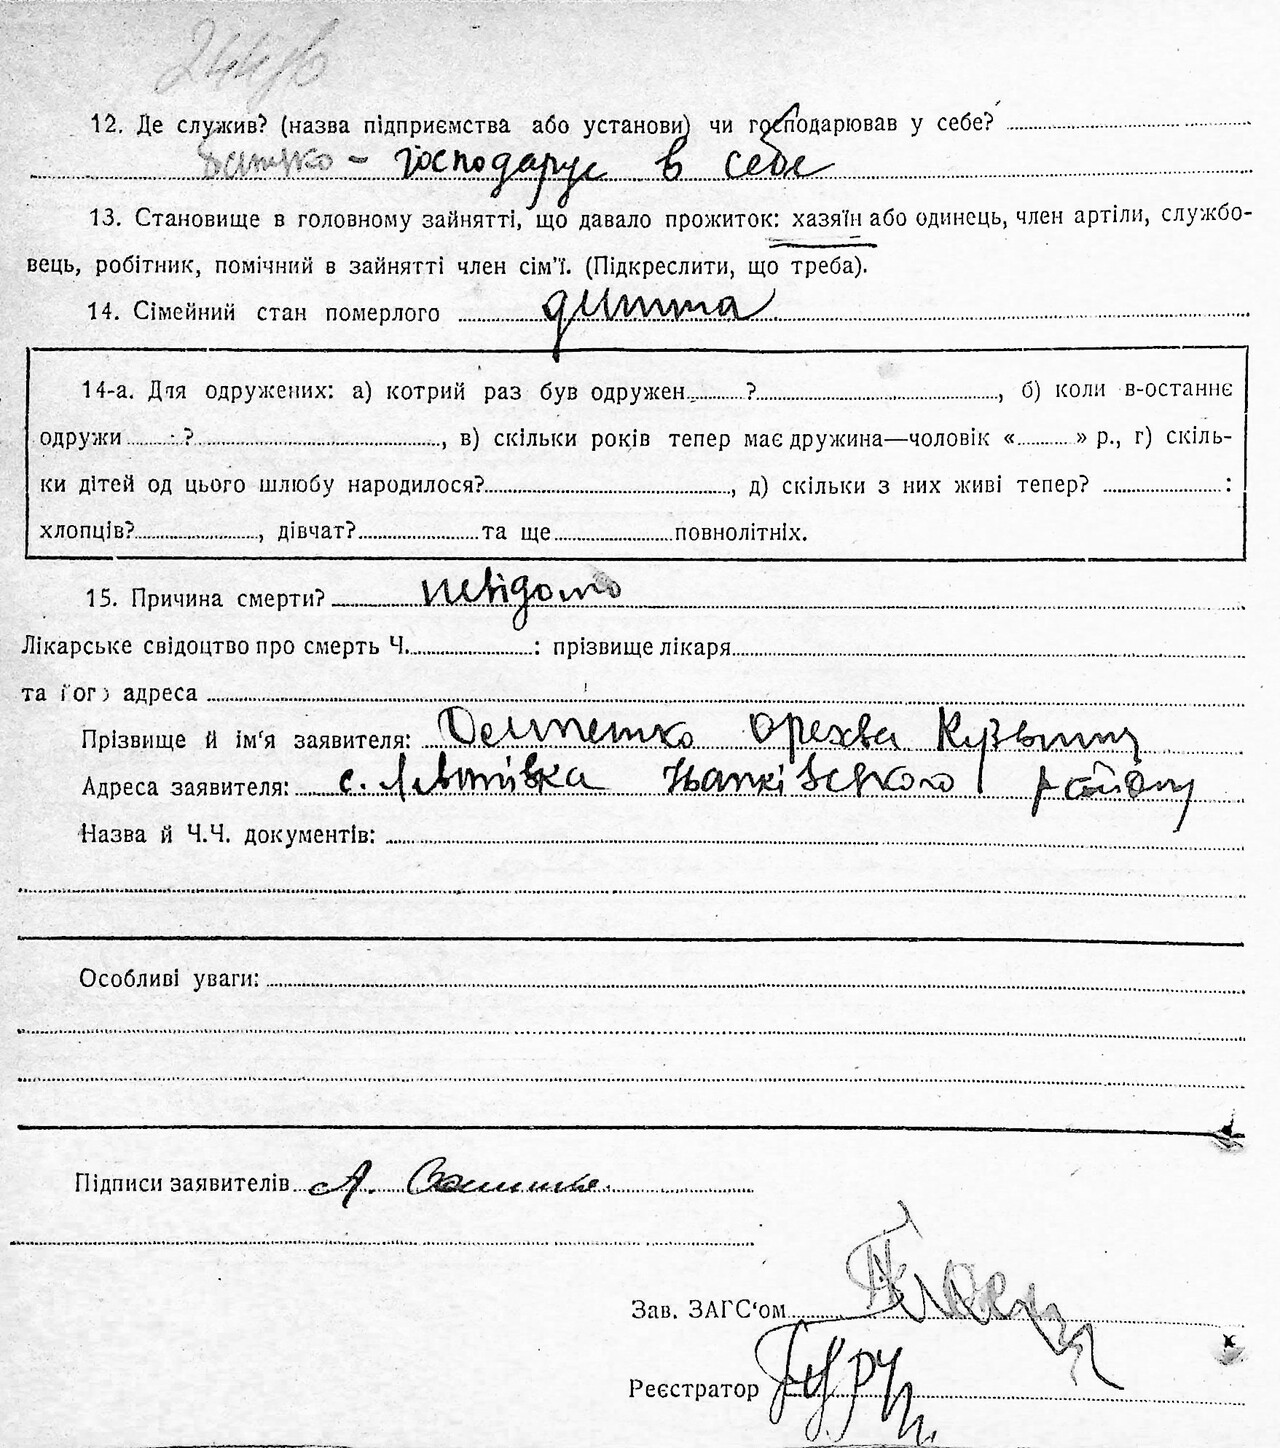 12. Де служив? (назва підприємства або установи) чи господарював у себе?
батько - господарує в себе
13. Становище в головному зайнятті, що давало прожиток: хазяїн або одинець, член артіли, службо-
вець, робітник, помічний в зайнятті член сім'ї. (Підкреслити, що треба).
14. Сімейний стан померлого дитина
14-а. Для одружених: а) котрий раз був одружен ?, б) коли в-останнє
одружи ?, в) скільки років тепер має дружина—чоловік « » р., г) скіль-
ки дітей од цього шлюбу народилося?, д) скільки з них живі тепер? :
хлопців?, дівчат? та ще повнолітніх.
15. Причина смерти? невідомо
Лікарське свідоцтво про смерть Ч. : прізвище лікаря
та його адреса
Прізвище й ім'я заявителя:
Адреса заявителя: с. району
Назва й Ч.Ч. документів:
Особливі уваги:
Підписи заявителів А.
Зав. ЗАГС'ом
Реєстратор